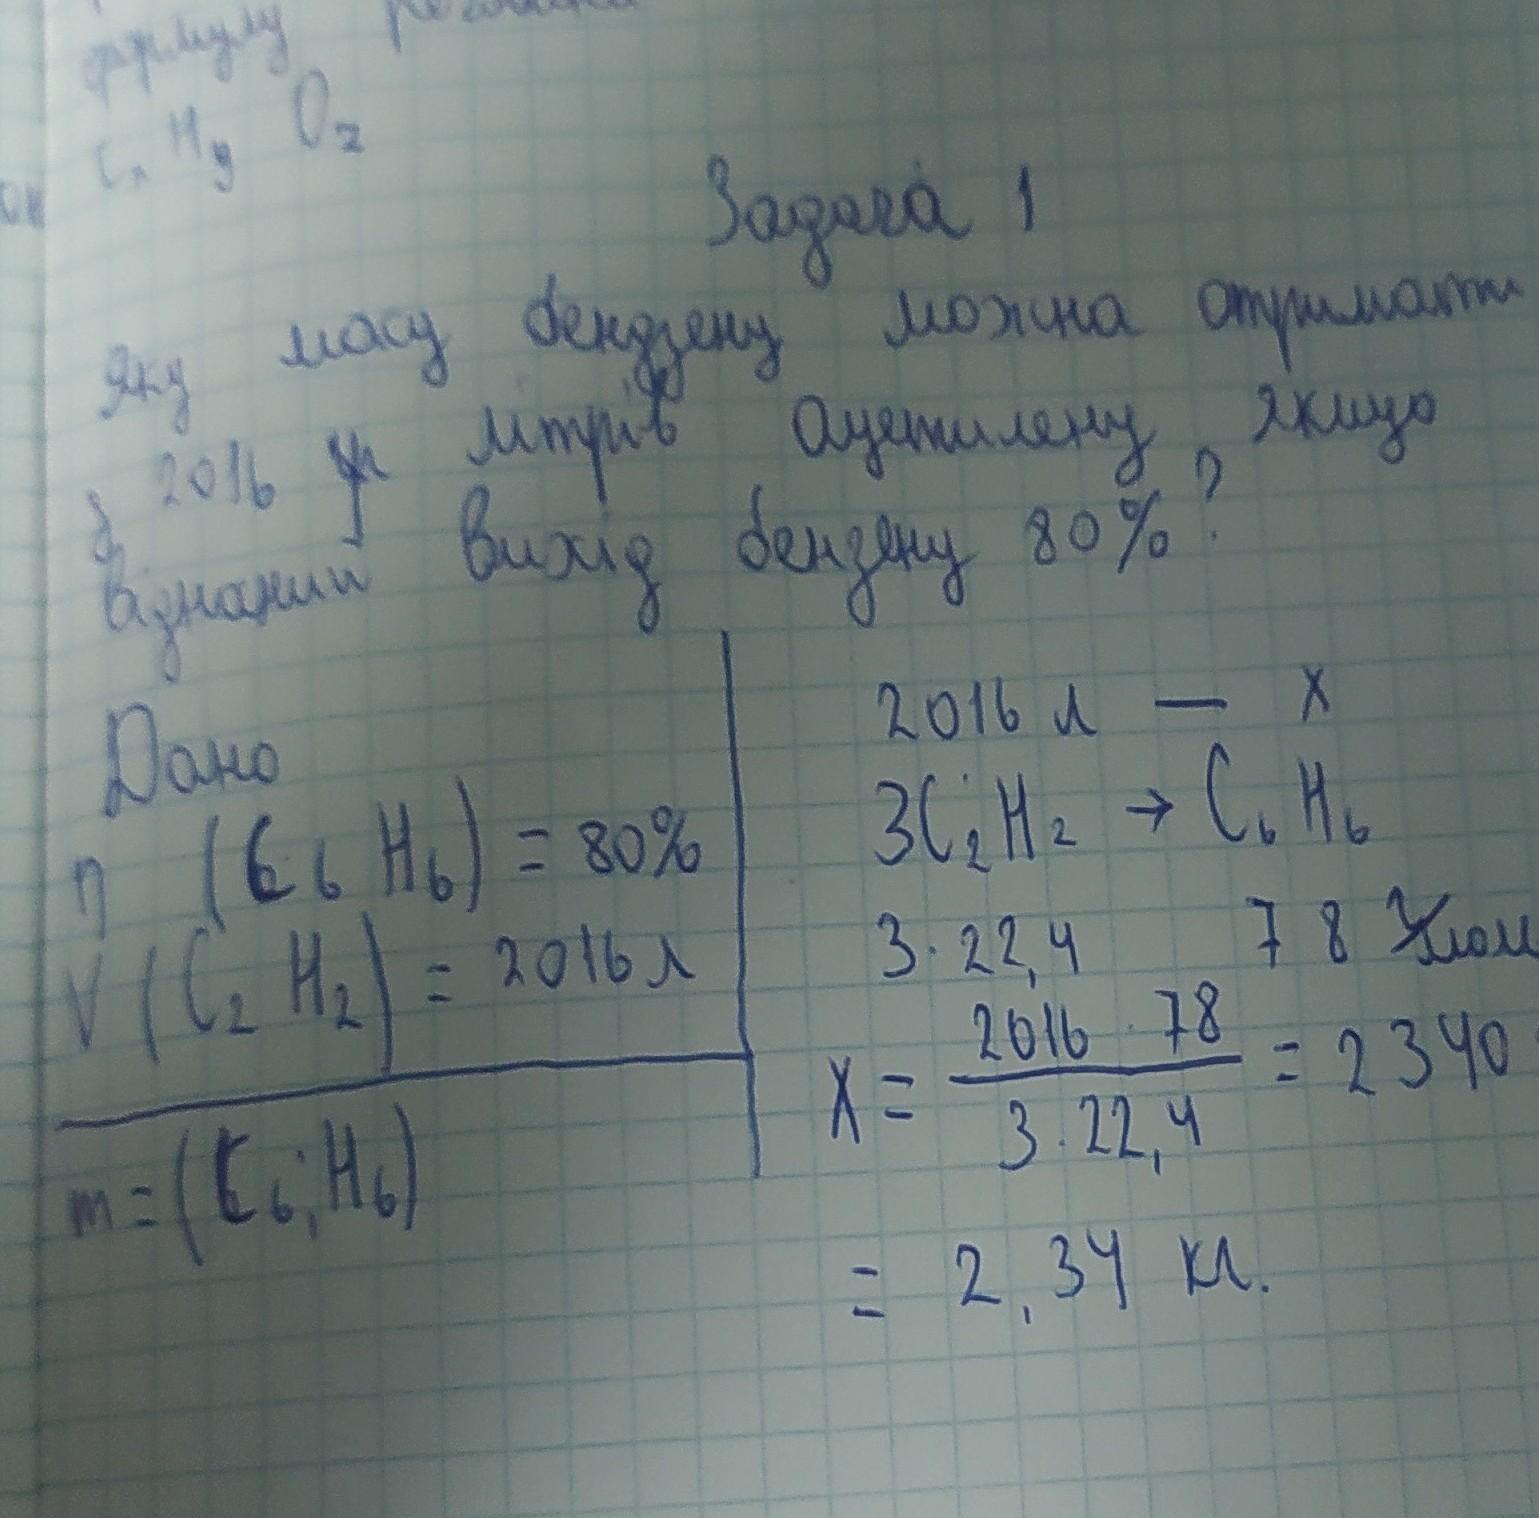 формулу
Cx Hy Oz
Задача 1
Яку масу бендзену можна отримати
з 2016 літрів ацетилену, якщо
відносний вихід бензену 80%?
Дано
η (C6 H6) = 80%
V (C2 H2) = 2016 л
m = (C6 H6)
2016 л — X
3C2H2 → C6 H6
3·22,4 78
X = 2016 · 78 / 3·22,4 = 2340
= 2,34 кг.